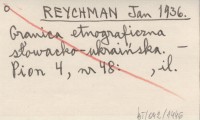 REYCHMAN Jan 1936.
Granica etnograficzna
słowacko-ukraińska. —
Pion 4, nr 48: , il.